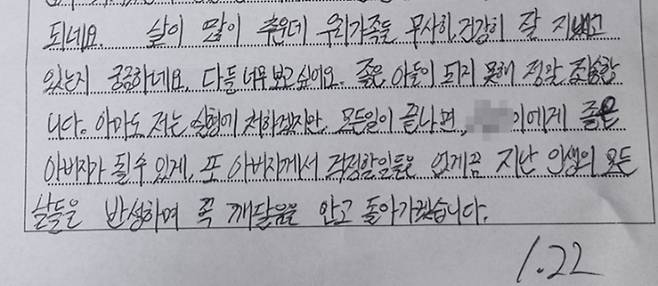 되네요. 날이 많이 추운데 우리가족들 무사히, 건강히 잘 지내고
있는지 궁금하네요. 다들 너무 보고싶어요. 좋은 아들이 되지 못해 정말 죄송합
니다. 아마도 저는 실형에 처하겠지만, 모든일이 끝나면, 이에게 좋은
아버지가 될 수 있게, 또 아버지께서 걱정할일들은 없게끔 지난 인생의 모든
날들을 반성하며 꼭 깨달음을 안고 돌아가겠습니다.
1.22